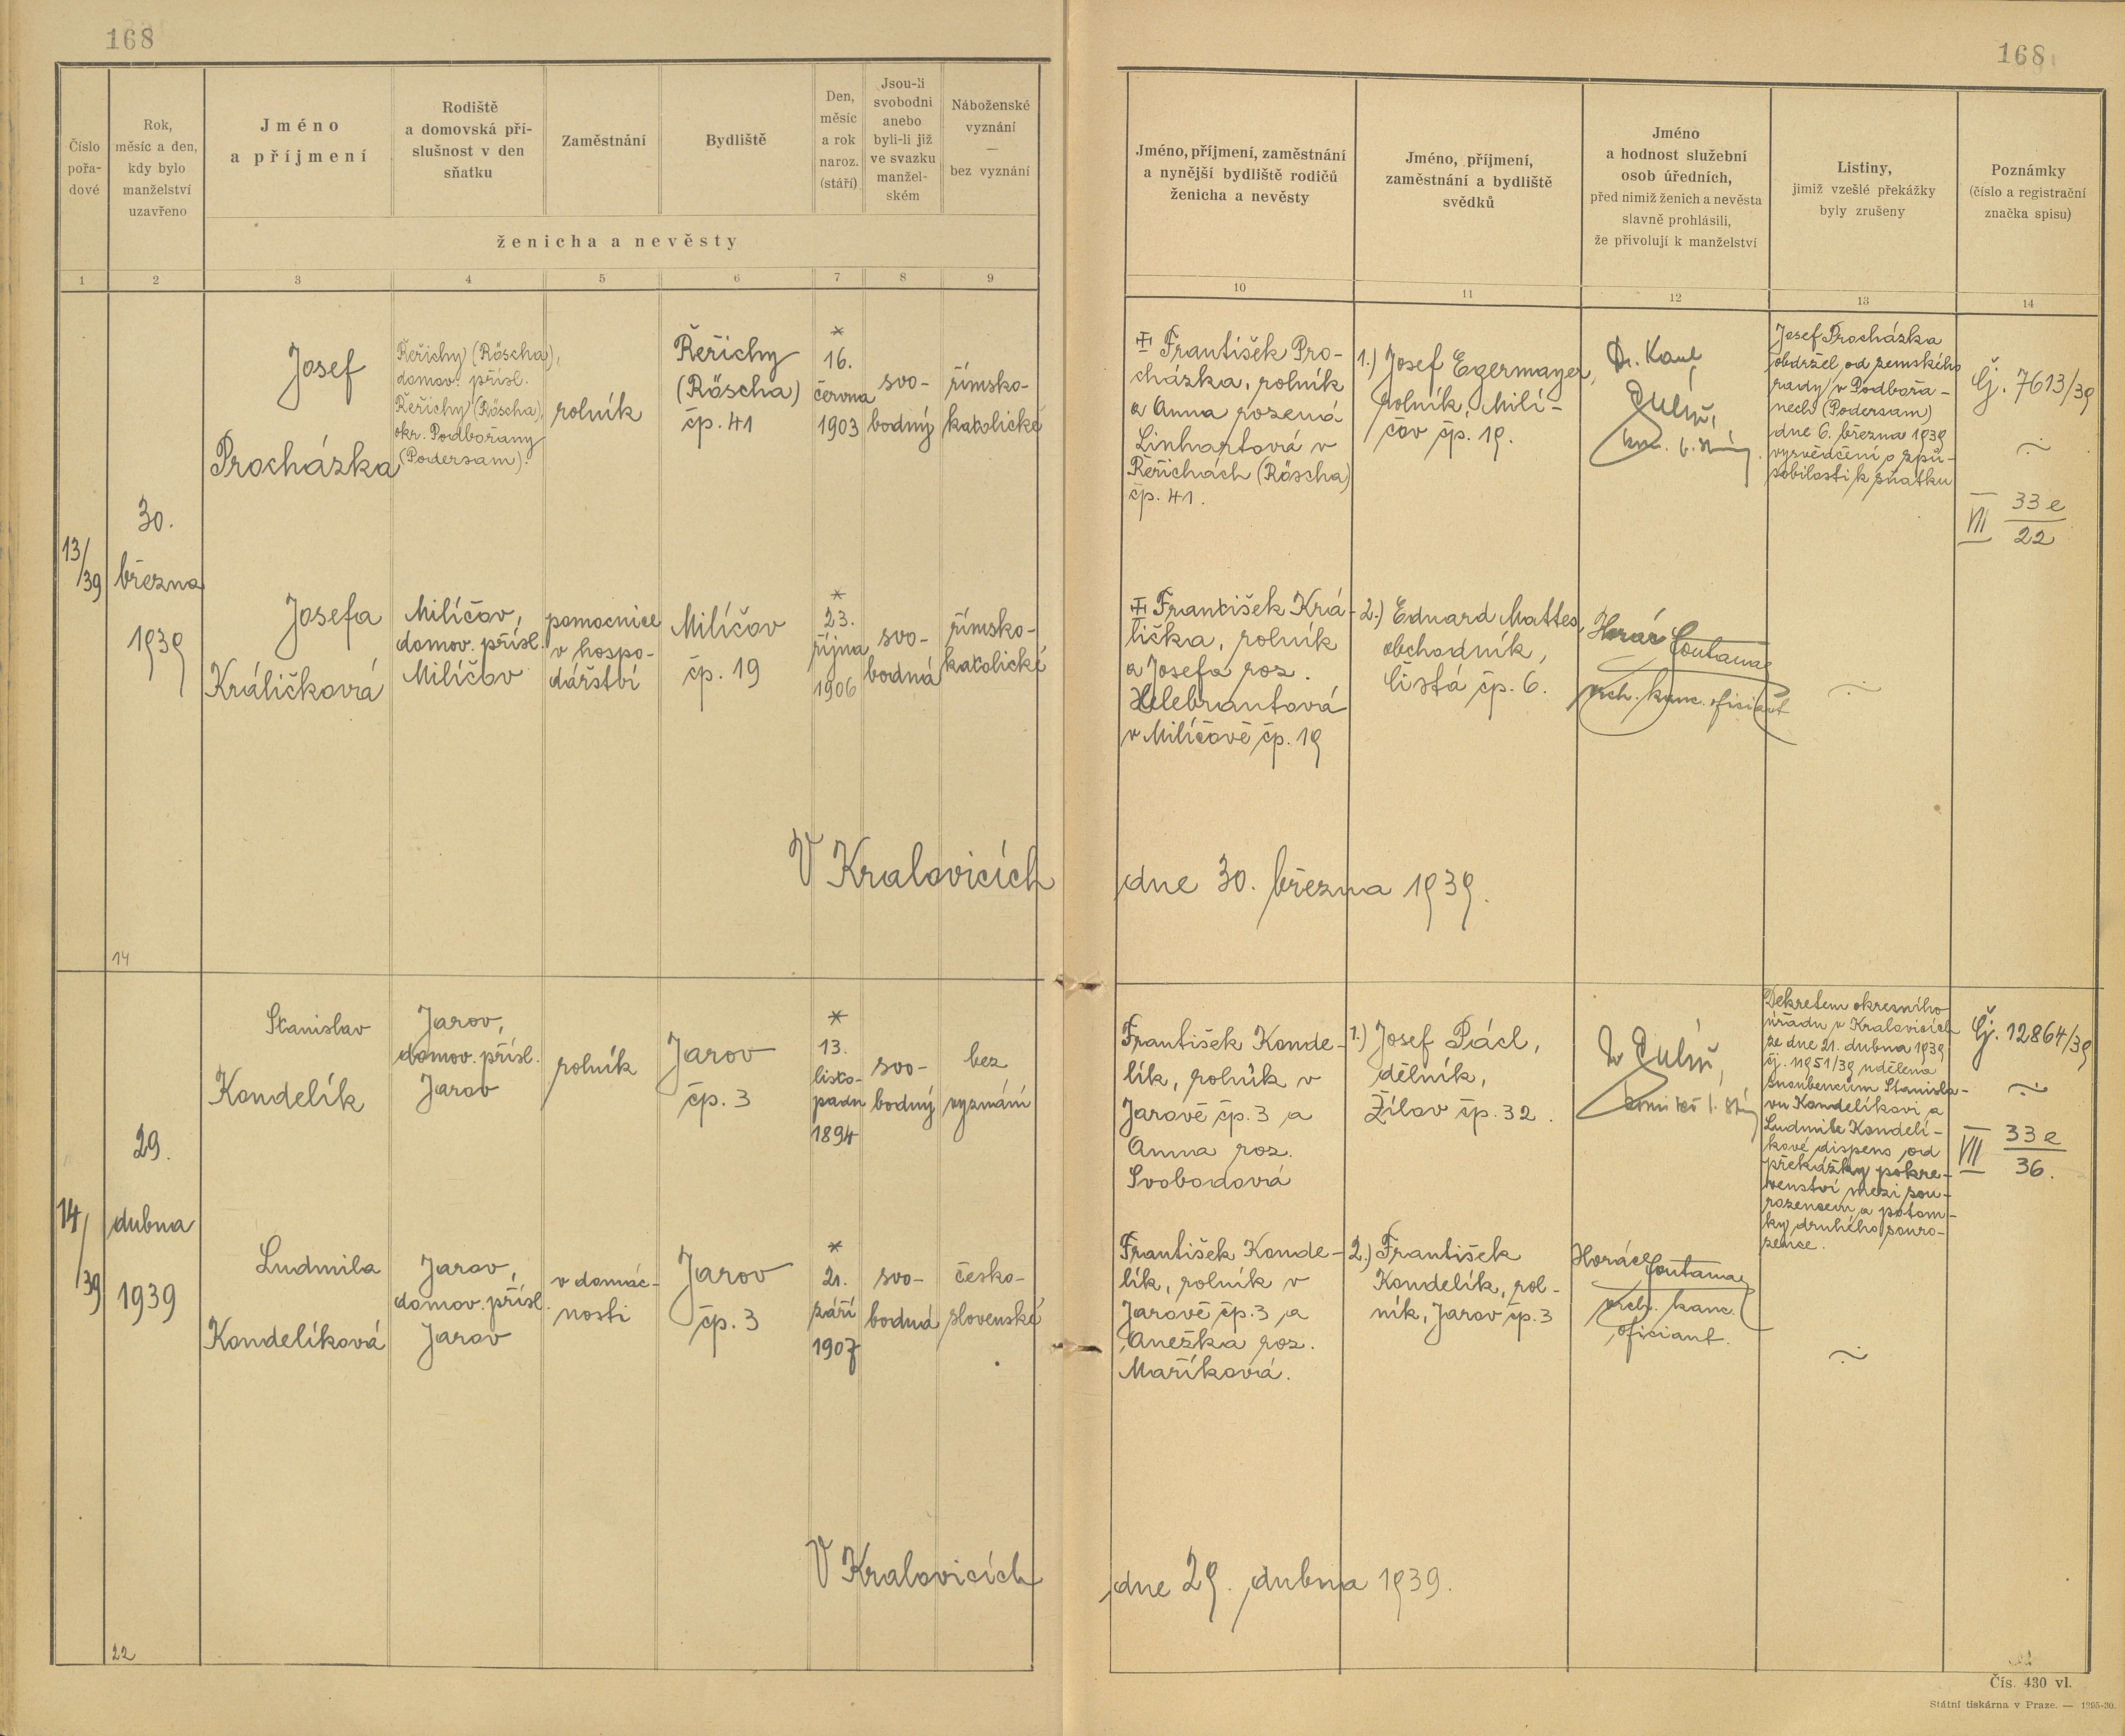 168
168
Číslo
pořa-
dové
Rok,
měsíc a den,
kdy bylo
manželství
uzavřeno
Jméno
a příjmení
Rodiště
a domovská pří-
slušnost v den
sňatku
Zaměstnání
Bydliště
Den,
měsíc
a rok
naroz.
(stáří)
Jsou-li
svobodni
anebo
byli-li již
ve svazku
manžel-
ském
Náboženské
vyznání
—
bez vyznání
ženicha a nevěsty
Jméno, příjmení, zaměstnání
a nynější bydliště rodičů
ženicha a nevěsty
Jméno, příjmení,
zaměstnání a bydliště
svědků
Jméno
a hodnost služební
osob úředních,
před nimiž ženich a nevěsta
slavně prohlásili,
že přivolují k manželství
Listiny,
jimiž vzešlé překážky
byly zrušeny
Poznámky
(číslo a registrační
značka spisu)
1 2 3 4 5 6 7 8 9 10 11 12 13 14
13/39
30.
března
1939
Josef
Procházka
Řeřichy (Röscha),
domov. přísl.
Řeřichy (Röscha),
okr. Podbořany
(Podersam).
rolník
Řeřichy
(Röscha)
čp. 41
*
16.
června
1903
svo-
bodný
římsko-
katolické
František Pro-
cházka, rolník
a Anna rozená
Linhartová v
Řeřichách (Röscha)
čp. 41.
1.) Josef Egermayer,
rolník, Milí-
čov čp. 19.
Dr. Karel
Josef Procházka
obdržel od zemského
rady v Podbořa-
nech (Podersam)
dne 6. března 1939
vysvědčení o způ-
sobilosti k sňatku
Čj. 7613/39
VII 33 e
22
Josefa
Králičková
Milíčov,
domov. přísl.
Milíčov
pomocnice
v hospo-
dářství
Milíčov
čp. 19
*
23.
října
1906
svo-
bodná
římsko-
katolické
František Krá-
lička, rolník
a Josefa roz.
Helebrantová
v Milíčově čp. 19
2.) Eduard Mattes,
obchodník,
Čistá čp. 6.
vrch. kanc. oficiant
V Kralovicích dne 30. března 1939.
14
14/39
29.
dubna
1939
Stanislav
Kondelík
Jarov,
domov. přísl.
Jarov
rolník
Jarov
čp. 3
*
13.
listo-
padu
1894
svo-
bodný
bez
vyznání
František Konde-
lík, rolník v
Jarově čp. 3 a
Anna roz.
Svobodová
1.) Josef Pácl,
dělník,
Žilov čp. 32.
Dekretem okresního
úřadu v Kralovicích
ze dne 21. dubna 1939
čj. 11951/39 udělena
snoubencům Stanisla-
vu Kondelíkovi a
Ludmile Kondelí-
kové dispens od
překážky pokre-
venství mezi sou-
rozencem a potom-
ky druhého souro-
zence.
Čj. 12864/39
VII 33 e
36.
Ludmila
Kondelíková
Jarov,
domov. přísl.
Jarov
v domác-
nosti
Jarov
čp. 3
*
21.
září
1907
svo-
bodná
česko-
slovenské
František Konde-
lík, rolník v
Jarově čp. 3 a
Anežka roz.
Maříková.
2.) František
Kondelík, rol-
ník, Jarov čp. 3
vrch. kanc.
oficiant.
V Kralovicích dne 29. dubna 1939.
22
Čís. 430 vl.
Státní tiskárna v Praze. —